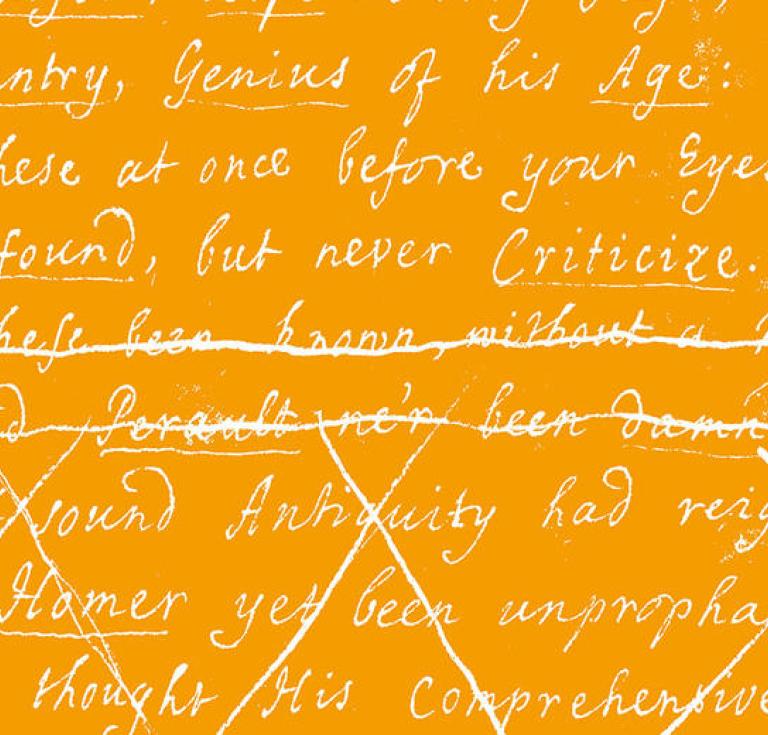 ntry, Genius of his Age:
hese at once before your Eyes
found, but never Criticize.
hese been known, without a
d Perault ne'r been damn
sound Antiquity had reig
Homer yet been unpropha
thought His Comprehensive